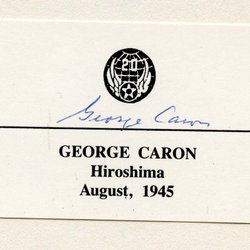 20
George Caron
GEORGE CARON
Hiroshima
August, 1945